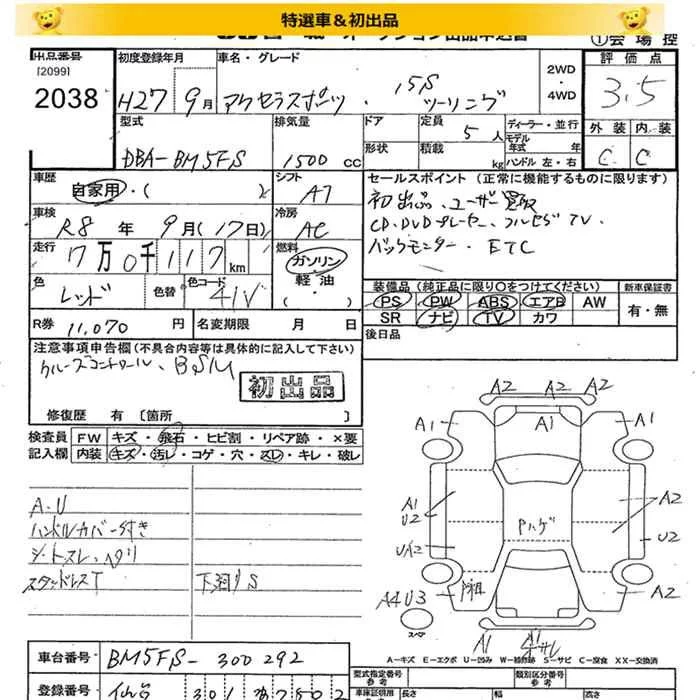 特選車＆初出品
オークション出品申込書 ①会場控
出品番号
[2099]
2038
初度登録年月
H27 9月
車名・グレード
アクセラスポーツ・15S ツーリング
2WD
・
4WD
評価点
3.5
外装 内装
C C
型式
DBA-BM5FS
排気量
1500 cc
ドア
形状
定員 5人
積載 kg
ディーラー・並行
モデル年式 年式
ハンドル 左・右
車歴
自家用・( )
シフト
A7
車検
R8年9月(17日)
冷房
AC
走行
7万0千117km
燃料
ガソリン
軽油
・
色
レッド
色替
色コード
41V
R券 11,070円
名変期限 月 日
セールスポイント (正常に機能するものに限ります)
初出品、ユーザー買取
CD、DVDプレーヤー、フルセグTV、
バックモニター、ETC
装備品 (純正品に限り○をつけてください)
新車保証書
PS PW ABS エアB AW
SR ナビ TV カワ
有・無
後日品
注意事項申告欄 (不具合内容等は具体的に記入して下さい)
クルーズコントロール、BSM
初出品
修復歴 有 [箇所 ]
検査員記入欄
FW キズ・飛石・ヒビ割・リペア跡・×要
内装 キズ・汚レ・コゲ・穴・スレ・キレ・破レ
A.U
ハンドルカバー付き
シートスレ、ヘタリ
スタッドレスT
下廻りS
A2 A2 A2
A1 A1 A1
A1
U2
A2
Pハゲ
U2
A2
A4U3
スペア
A1 A1
A－キズ E－エクボ U－凹み W－補修跡 S－サビ C－腐食 XX－交換済
車台番号 BM5FS-300292
登録番号 仙台 301
型式指定番号
類別区分番号
参考
車庫証明用
長さ
幅
高さ